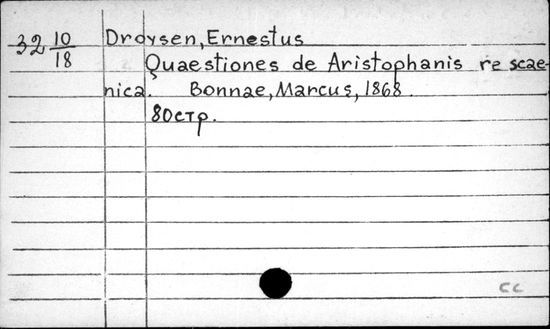 32 10/18 Droysen, Ernestus
Quaestiones de Aristophanis re scae-
nica. Bonnae, Marcus, 1868.
80стр.
cc